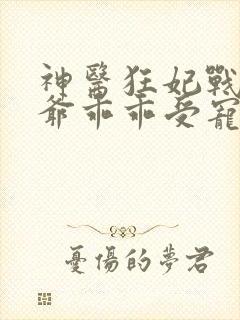 神醫狂妃戰
爺乖乖受寵
憂傷的夢君